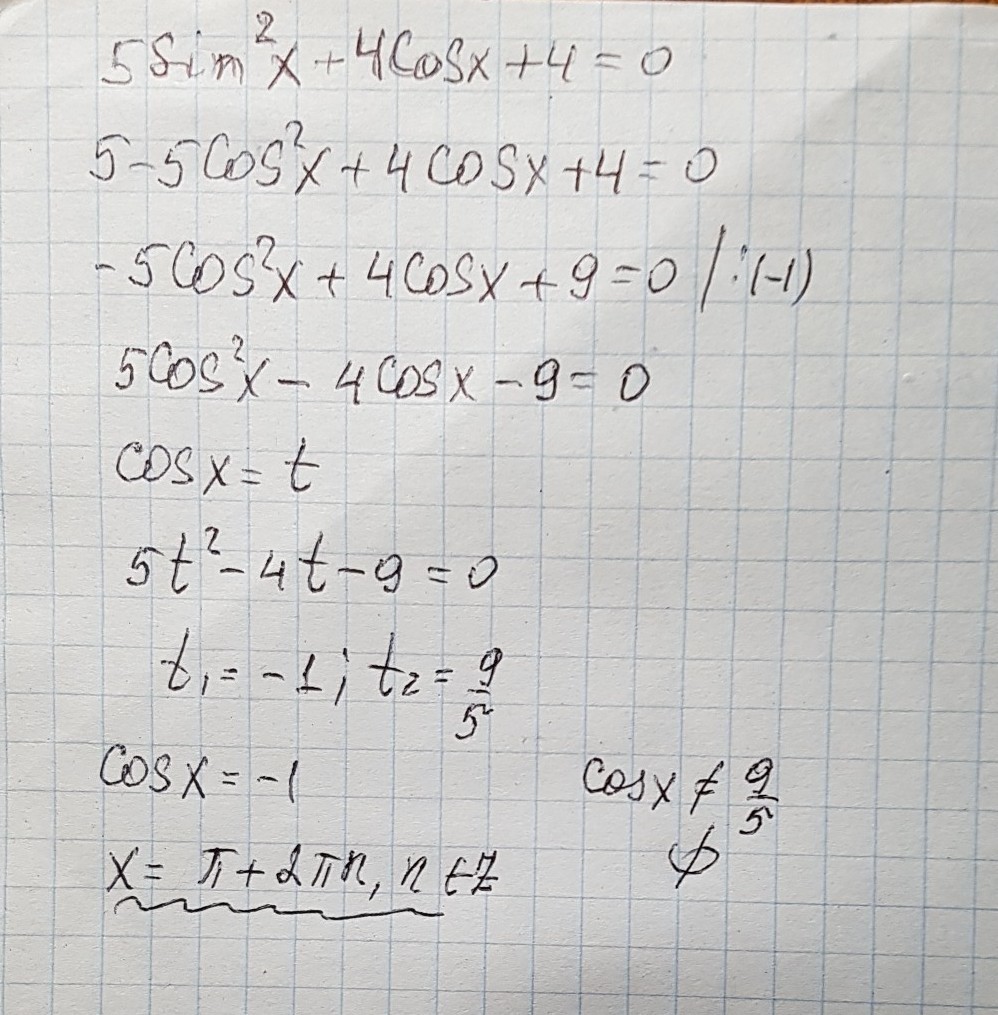 5Sin²x + 4Cosx + 4 = 0
5 - 5Cos²x + 4Cosx + 4 = 0
-5Cos²x + 4Cosx + 9 = 0 / : (-1)
5Cos²x - 4Cosx - 9 = 0
Cosx = t
5t² - 4t - 9 = 0
t₁ = -1; t₂ = 9/5
Cosx = -1 Cosx ≠ 9/5
∅
x = π + 2πn, n ∈ Z